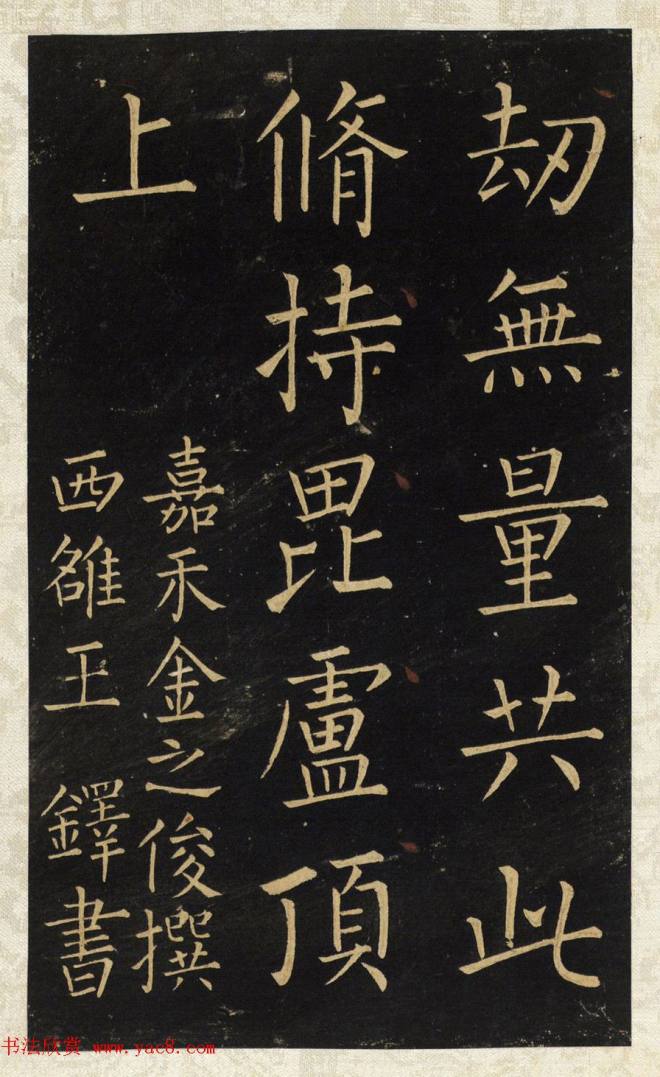 劫無量共此
脩持毘盧頂
上
嘉禾金之俊撰
西雒王鐸書
书法欣赏 www.yac8.com